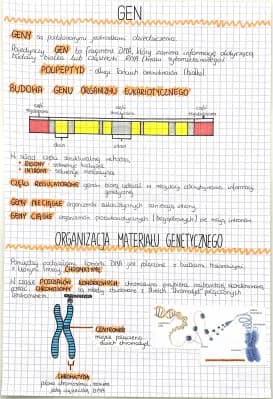 GEN
GENY są podstawowymi jednostkami dziedziczenia.
Pojedynczy GEN to fragment DNA, który zawiera informację dotyczącą
budowy białka lub cząsteczki RNA
POLIPEPTYD - długi łańcuch aminokwasów (białko)
BUDOWA GENU ORGANIZMU EUKARIOTYCZNEGO
część regulatorowa
część
część regulatorowa
W skład części strukturalnej wchodzą:
• EKSONY - sekwencje kodujące
• INTRONY - sekwencje niekodujące
CZĘŚCI REGULATOROWE genów biorą udział w regulacji odczytywania informacji
genetycznej
GENY NIECIĄGŁE organizmów eukariotycznych zawierają introny
GENY CIĄGŁE organizmów prokariotycznych (bezjądrowych) nie mają intronów
ORGANIZACJA MATERIAŁU GENETYCZNEGO
Pomiędzy podziałami komórki DNA jest połączone z białkami histonowymi
i tworzy CHROMATYNĘ
W czasie PODZIAŁÓW KOMÓRKOWYCH chromatyna
CHROMOSOMY są wtedy zbudowane z dwóch chromatyd połączonych
centromerem
CENTROMER
miejsce połączenia
dwóch chromatyd
CHROMATYDA